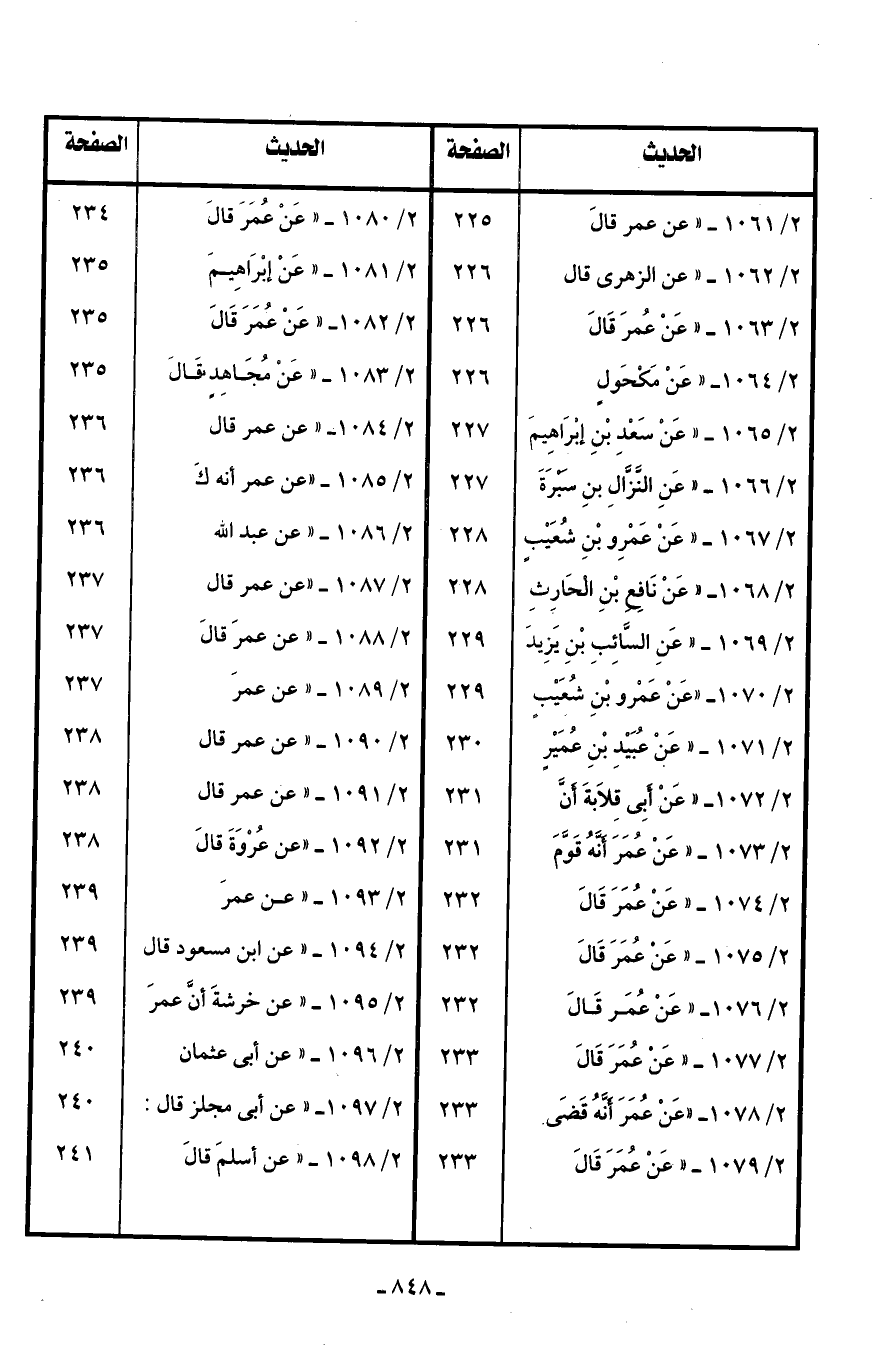 الحديث الصفحة
٢/ ١٠٦١ ـ « عن عمر قالَ ٢٢٥
٢/ ١٠٦٢ ـ « عن الزهرى قال ٢٢٦
٢/ ١٠٦٣ ـ « عَنْ عُمرَ قَالَ ٢٢٦
٢/ ١٠٦٤ـ « عَنْ مَكْحَولٍ ٢٢٦
٢/ ١٠٦٥ ـ « عَنْ سَعْدِ بْنِ إبْرَاهِيمَ ٢٢٧
٢/ ١٠٦٦ ـ « عَنِ النَّزَّالِ بنِ سَبْرَةَ ٢٢٧
٢/ ١٠٦٧ ـ « عَنْ عَمْرِو بْنِ شُعَيْبٍ ٢٢٨
٢/ ١٠٦٨ـ « عَنْ نَافِعِ بْنِ الْحَارِثِ ٢٢٨
٢/ ١٠٦٩ ـ « عَنِ السَّائِبِ بْنِ يَزِيدَ ٢٢٩
٢/ ١٠٧٠ـ «عَنْ عَمْرِو بْنِ شُعَيْبٍ ٢٢٩
٢/ ١٠٧١ ـ « عَنْ عُبَيْدِ بْنِ عُمَيْرٍ ٢٣٠
٢/ ١٠٧٢ـ « عَنْ أَبِى قِلاَبَةَ أَنَّ ٢٣١
٢/ ١٠٧٣ ـ « عَنْ عُمَرَ أَنَّهُ قَوَّمَ ٢٣١
٢/ ١٠٧٤ ـ « عَنْ عُمَرَ قَالَ ٢٣٢
٢/ ١٠٧٥ ـ « عَنْ عُمَرَ قَالَ ٢٣٢
٢/ ١٠٧٦ـ « عَنْ عُمَـر قَـالَ ٢٣٢
٢/ ١٠٧٧ ـ « عَنْ عُمَرَ قَالَ ٢٣٣
٢/ ١٠٧٨ـ «عَنْ عُمَرَ أَنَّهُ قَضَى ٢٣٣
٢/ ١٠٧٩ ـ « عَنْ عُمَرَ قَالَ ٢٣٣
الحديث الصفحة
٢/ ١٠٨٠ ـ « عَنْ عُمَرَ قالَ ٢٣٤
٢/ ١٠٨١ ـ « عَنْ إبْرَاهِيـمَ ٢٣٥
٢/ ١٠٨٢ـ « عَنْ عُمَرَ قَالَ ٢٣٥
٢/ ١٠٨٣ ـ « عَنْ مُجَـاهِدٍ قَـالَ ٢٣٥
٢/ ١٠٨٤ـ « عن عمر قال ٢٣٦
٢/ ١٠٨٥ ـ «عن عمر أنه كَ ٢٣٦
٢/ ١٠٨٦ ـ « عن عبد الله ٢٣٦
٢/ ١٠٨٧ ـ «عن عمر قال ٢٣٧
٢/ ١٠٨٨ ـ « عن عمرَ قالَ ٢٣٧
٢/ ١٠٨٩ ـ « عن عمرَ ٢٣٧
٢/ ١٠٩٠ ـ « عن عمر قال ٢٣٨
٢/ ١٠٩١ ـ « عن عمر قال ٢٣٨
٢/ ١٠٩٢ ـ «عن عُرْوَةَ قالَ ٢٣٨
٢/ ١٠٩٣ ـ « عـن عمرَ ٢٣٩
٢/ ١٠٩٤ ـ « عن ابن مسعود قال ٢٣٩
٢/ ١٠٩٥ ـ « عن خرشةَ أنَّ عمرَ ٢٣٩
٢/ ١٠٩٦ ـ « عن أبى عثمان ٢٤٠
٢/ ١٠٩٧ـ « عن أبى مجلز قال : ٢٤٠
٢/ ١٠٩٨ ـ « عن أسلمَ قالَ ٢٤١
ـ ٨٤٨ ـ